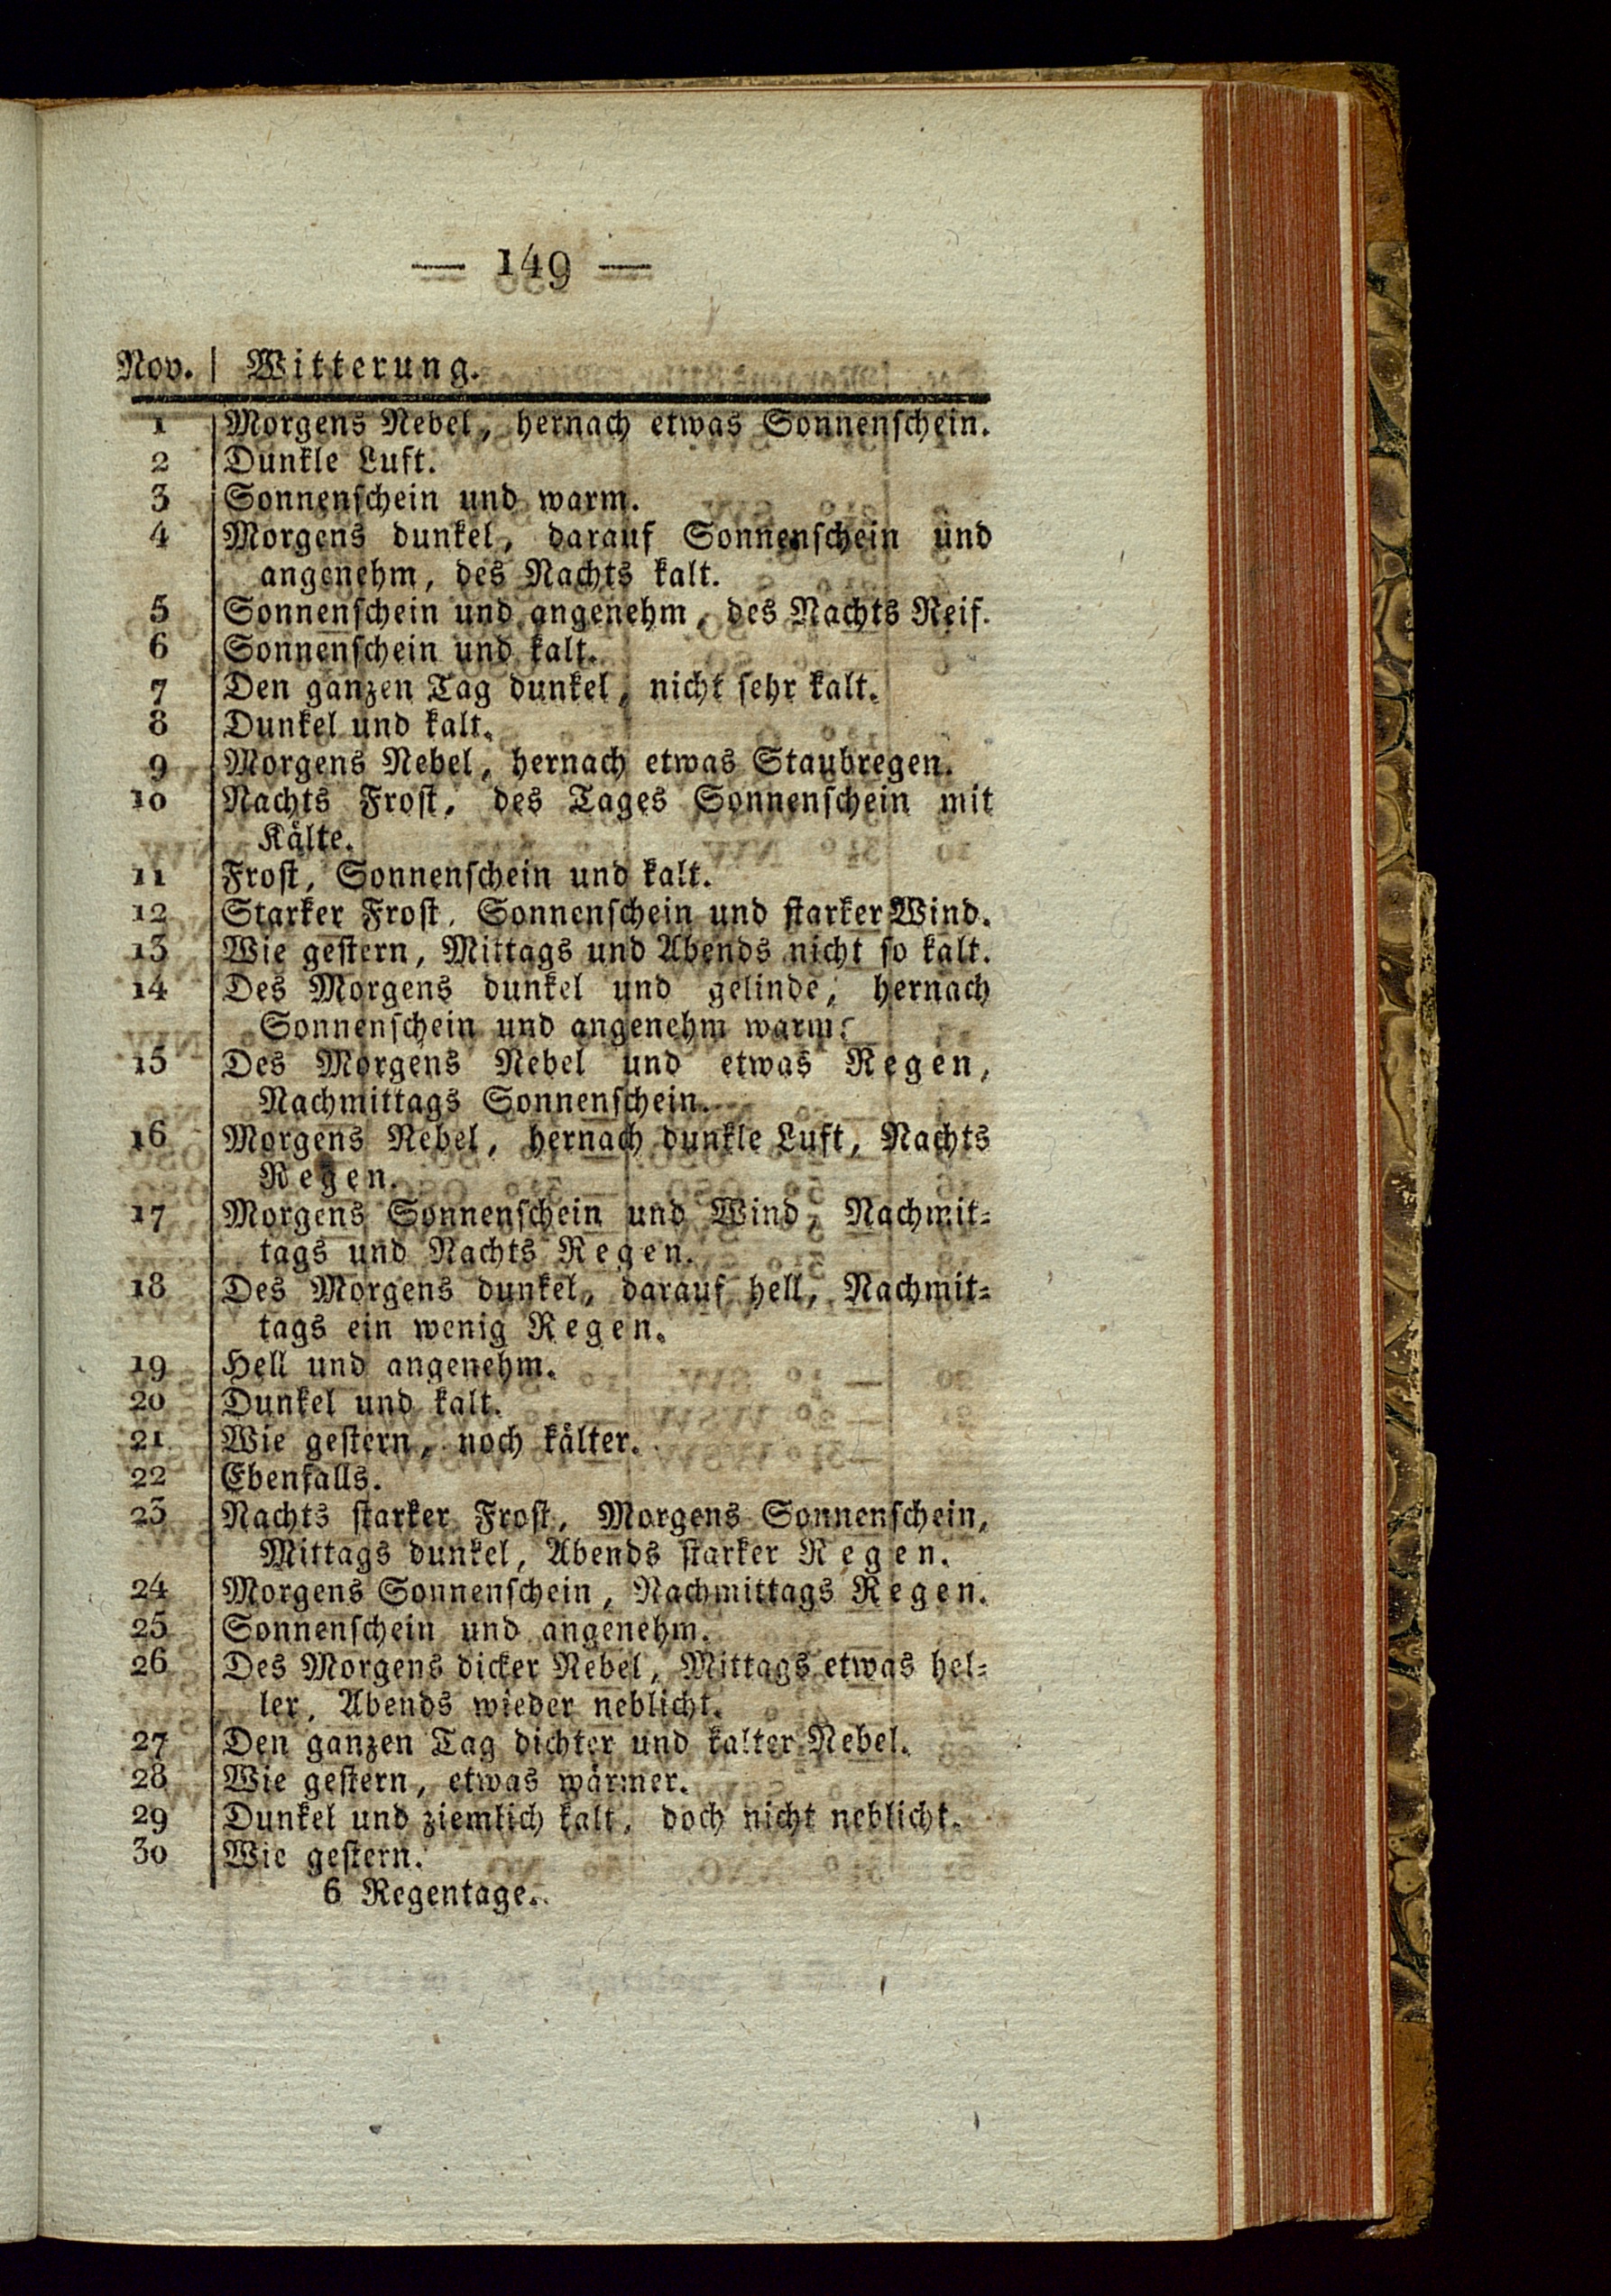 — 149 —
Nov. | Witterung.
1 Morgens Nebel, hernach etwas Sonnenschein.
2 Dunkle Luft.
3 Sonnenschein und warm.
4 Morgens dunkel, darauf Sonnenschein und
angenehm, des Nachts kalt.
5 Sonnenschein und angenehm, des Nachts Reif.
6 Sonnenschein und kalt.
7 Den ganzen Tag dunkel, nicht sehr kalt.
8 Dunkel und kalt.
9 Morgens Nebel, hernach etwas Staubregen.
10 Nachts Frost, des Tages Sonnenschein mit
Kälte.
11 Frost, Sonnenschein und kalt.
12 Starker Frost, Sonnenschein und starker Wind.
13 Wie gestern, Mittags und Abends nicht so kalt.
14 Des Morgens dunkel und gelinde, hernach
Sonnenschein und angenehm warm.
15 Des Morgens Nebel und etwas Regen,
Nachmittags Sonnenschein.
16 Morgens Nebel, hernach dunkle Luft, Nachts
Regen.
17 Morgens Sonnenschein und Wind, Nachmit-
tags und Nachts Regen.
18 Des Morgens dunkel, darauf hell, Nachmit-
tags ein wenig Regen.
19 Hell und angenehm.
20 Dunkel und kalt.
21 Wie gestern, noch kälter.
22 Ebenfalls.
23 Nachts starker Frost, Morgens Sonnenschein,
Mittags dunkel, Abends starker Regen.
24 Morgens Sonnenschein, Nachmittags Regen.
25 Sonnenschein und angenehm.
26 Des Morgens dicker Nebel, Mittags etwas hel-
ler, Abends wieder neblicht.
27 Den ganzen Tag dichter und kalter Nebel.
28 Wie gestern, etwas wärmer.
29 Dunkel und ziemlich kalt, doch nicht neblicht.
30 Wie gestern.
6 Regentage.